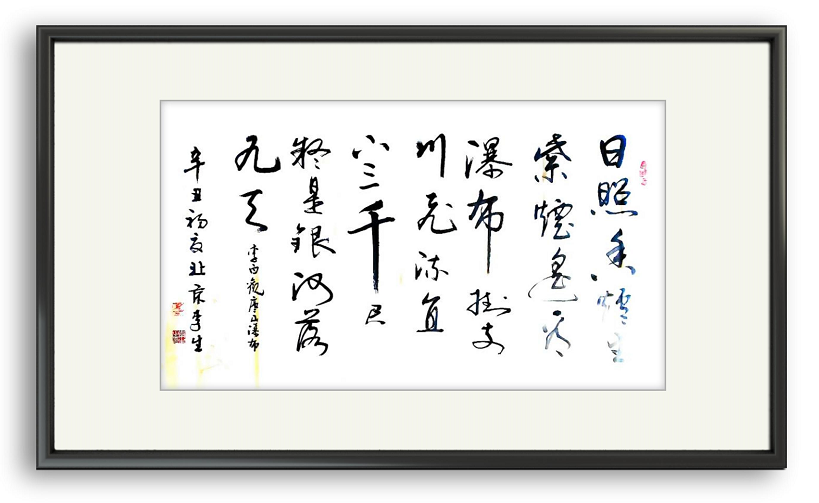 日照香炉生
紫煙遥看
瀑布掛前
川飞流直
下三千尺
疑是銀河落
九天
李白观庐山瀑布
辛丑初夏北京李生